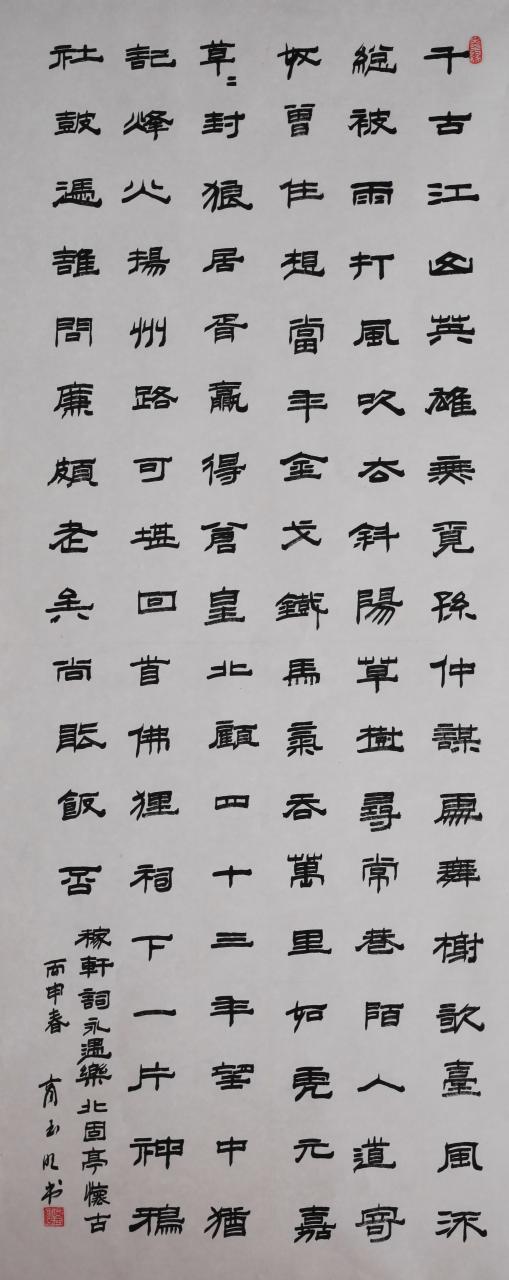 千古江山英雄無覓孫仲謀處舞榭歌臺風流
總被雨打風吹去斜陽草樹尋常巷陌人道寄
奴曾住想當年金戈鐵馬氣吞萬里如虎元嘉
草〻封狼居胥贏得倉皇北顧四十三年望中猶
記烽火揚州路可堪回首佛狸祠下一片神鴉
社鼓憑誰問廉頗老矣尚能飯否
稼軒詞永遇樂北固亭懷古
丙申春
玉明书